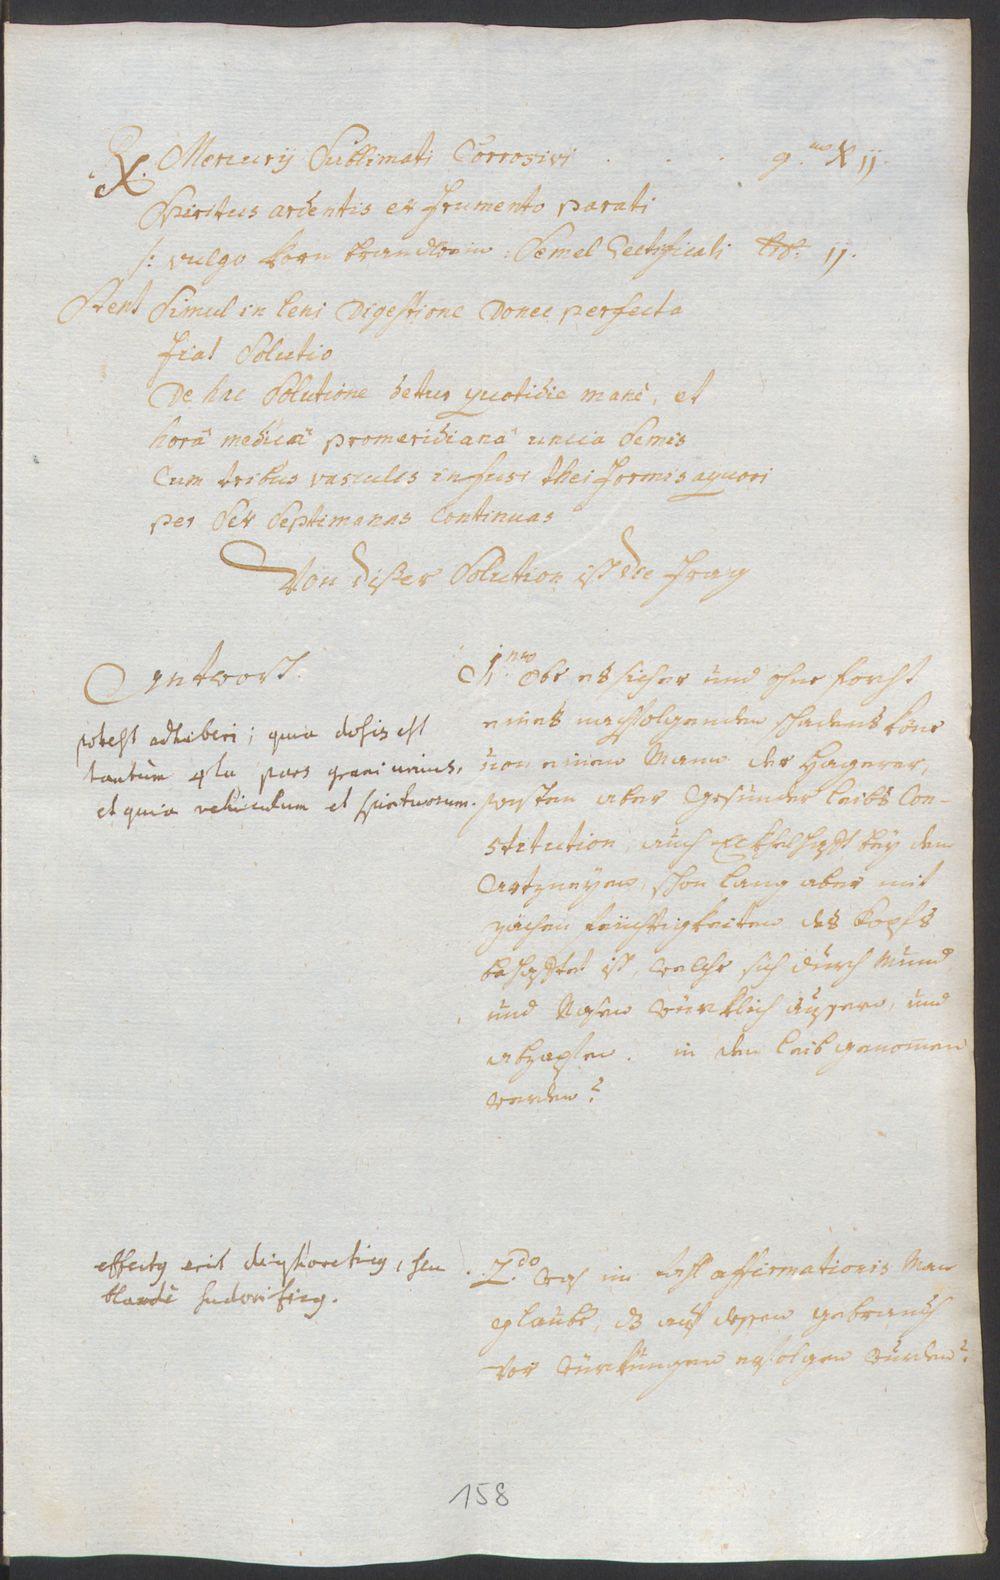 Rx. Mercurij Sublimati Corrosivi . . . g.nus Xij.
Spiritus ardentis ex frumento parati
/: vulgo Korn brandtwein : Semel Rectificati ij.
Stent Simul in leni Digestione Donec perfecta
fiat Solutio
De hac Solutione detur quotidie mane, et
horâ medicâ promeridianâ uncia Semis
Cum tribus vasculis infusi thei formis aquori
per Sex Septimanas Continuas
Von dißer Solution ist die Frag
Antwort.
potest adhiberi; quia dosis est
tantùm 4ta pars grani unius,
et quia vehiculum est spirituosum.
1.mo Obe es sicher und ohne forcht
eines nachfolgenden schadens köne
von einem Mann der hagerer,
vesten aber gesunder leibs Con-
stitution, auch Eckhelhafft bey den
Artzneyen, schon lang aber mit
zächen feüchtigkeiten des Kopfs
behafftet ist, welche sich durch Mund
und Nasen würklich äussern, und
abzapfen. in den leib genommen
werden?
effectus erit diaphoreticus, seu
blandè sudorificus.
2.do Was im fahl affirmationis Man
glaube, dz auß dessen gebrauch
vor würkungen erfolgen wurden?
158